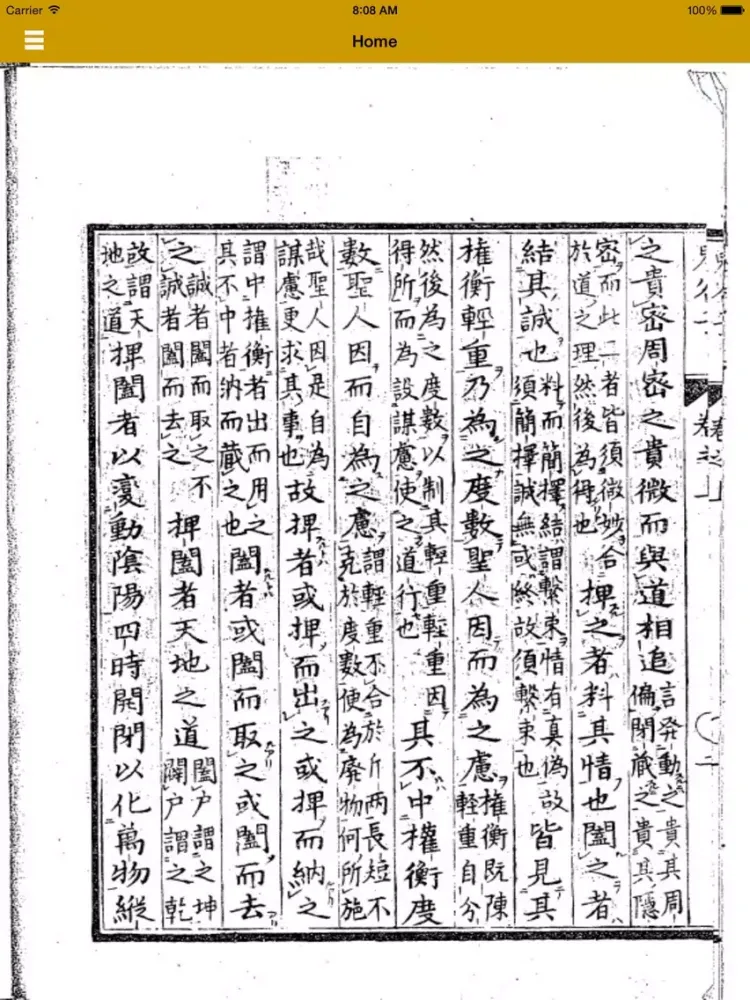 Carrier 8:08 AM 100%
Home
卷之上
二
之貴密周密之貴微而與道相追言發動之貴其周偏閉藏之貴其隱
密而此二者皆須微妙合於道之理然後為得也捭之者料其情也闔之者
結其誠也料而簡擇結謂繫束情有真偽故須簡擇誠無或終故須繫束也皆見其
權衡輕重乃為之度數聖人因而為之慮權衡既陳輕重自分
然後為之度數以制其輕重輕重因得所而為設謀慮使之道行也其不中權衡度
數聖人因而自為之慮謂輕重不合於斤兩長短不充於度數便為廢物何所施
哉聖人因是自為謀慮更求其事也故捭者或捭而出之或捭而納之
謂中權衡者出而用之其不中者納而藏之也闔者或闔而取之或闔而去
之誠者闔而取之不誠者闔而去之捭闔者天地之道闔戶謂之坤闢戶謂之乾
故謂天地之道捭闔者以變動陰陽四時開閉以化萬物縱